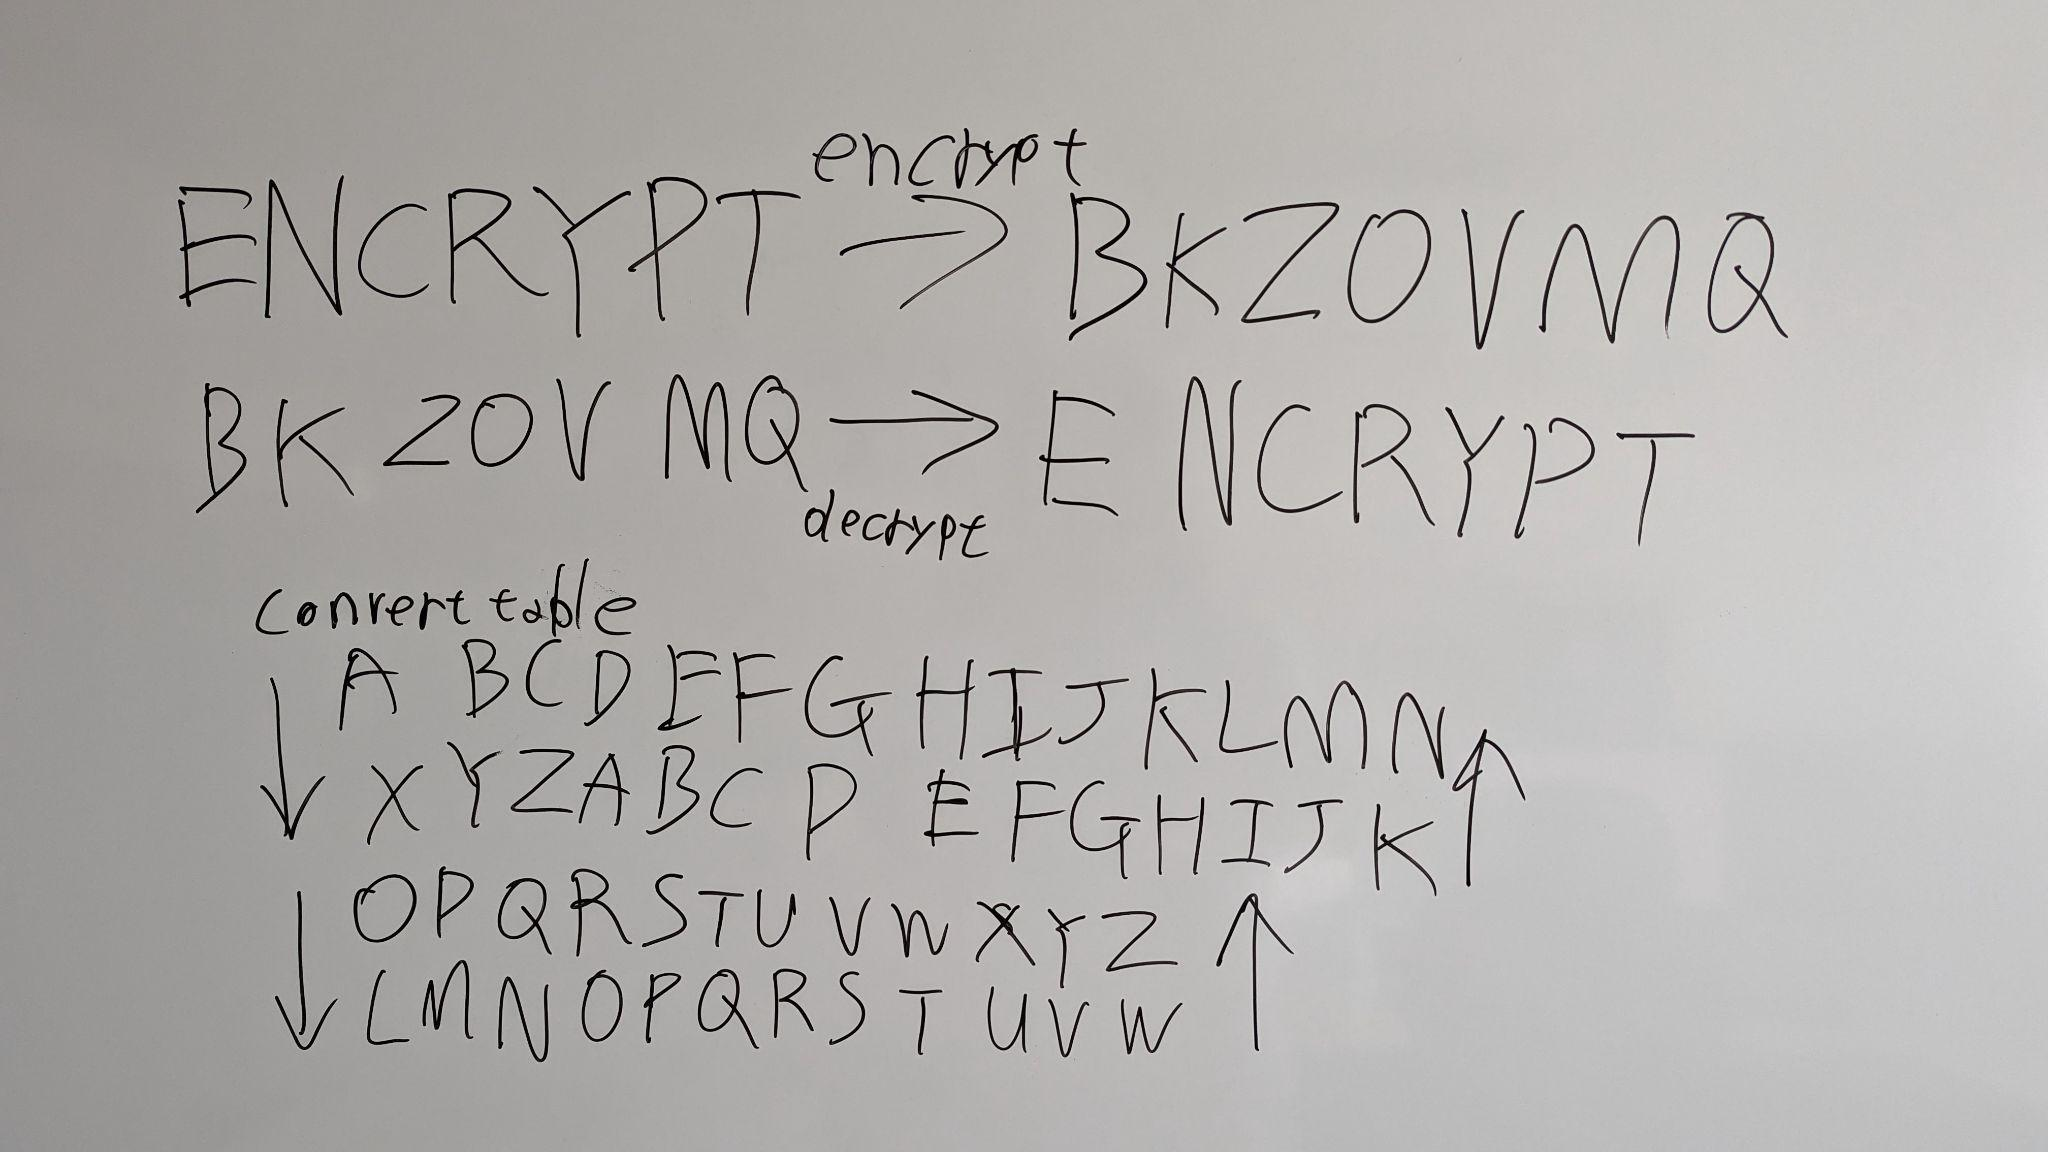 encrypt
ENCRYPT → BKZOVMQ
BKZOVMQ → ENCRYPT
decrypt
convert table
↓ A B C D E F G H I J K L M N ↑
X Y Z A B C D E F G H I J K
↓ O P Q R S T U V W X Y Z ↑
L M N O P Q R S T U V W